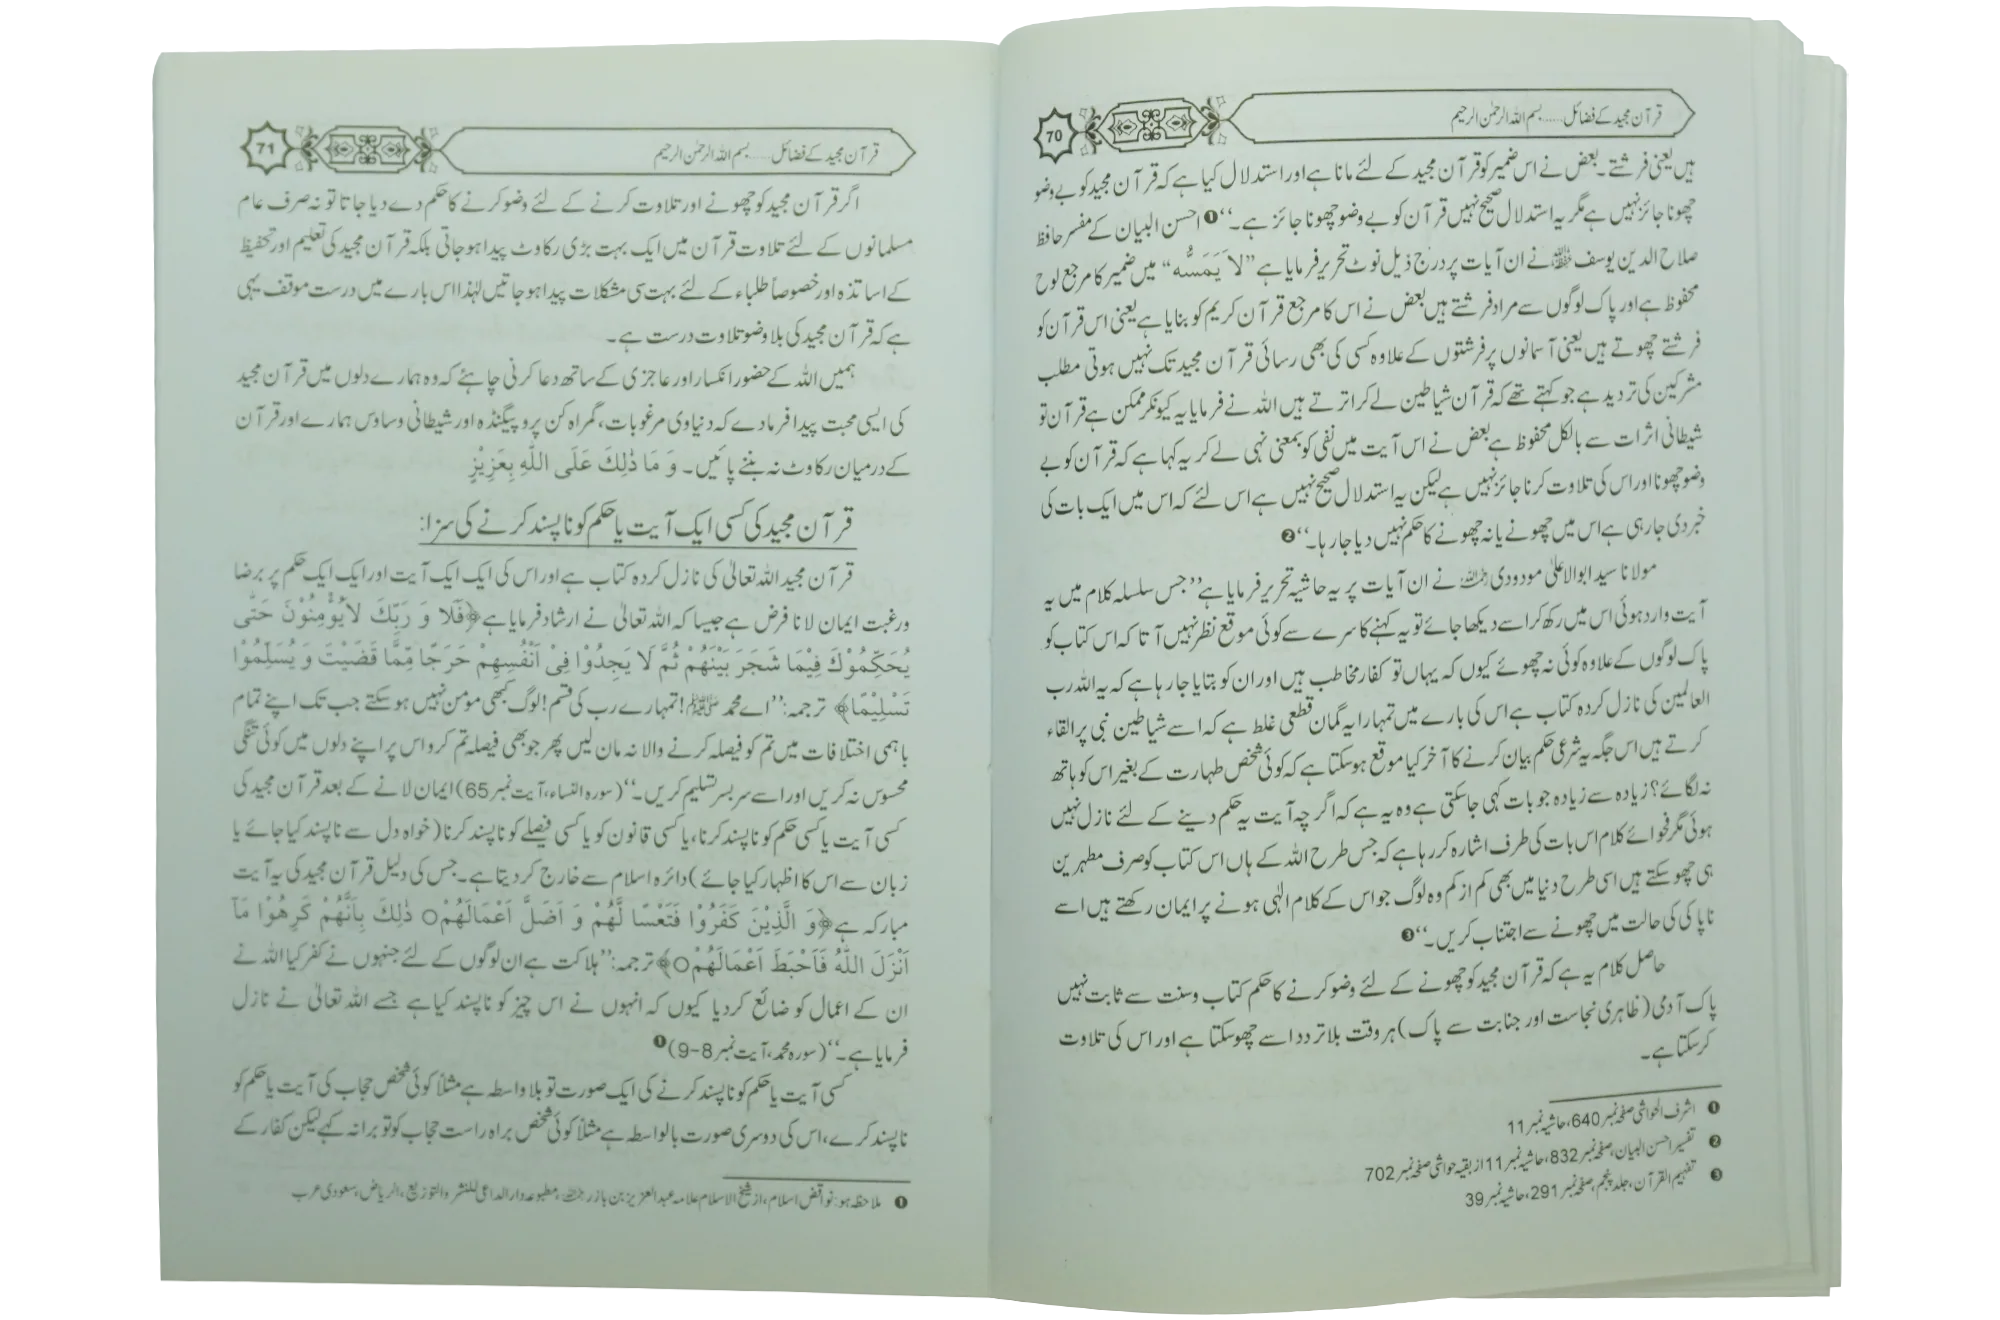 قرآن مجید کے فضائل......بسم اللہ الرحمٰن الرحیم
70
ہیں یعنی فرشتے۔ بعض نے اس ضمیر کو قرآن مجید کے لئے مانا ہے اور استدلال کیا ہے کہ قرآن مجید کو بے وضو
چھونا جائز نہیں ہے مگر یہ استدلال صحیح نہیں قرآن کو بے وضو چھونا جائز ہے۔‘‘❶ احسن البیان کے مفسر حافظ
صلاح الدین یوسف ﷾ نے ان آیات پر درج ذیل نوٹ تحریر فرمایا ہے ’’لَا یَمَسُّه‘‘ میں ضمیر کا مرجع لوح
محفوظ ہے اور پاک لوگوں سے مراد فرشتے ہیں بعض نے اس کا مرجع قرآن کریم کو بنایا ہے یعنی اس قرآن کو
فرشتے چھوتے ہیں یعنی آسمانوں پر فرشتوں کے علاوہ کسی کی بھی رسائی قرآن مجید تک نہیں ہوتی مطلب
مشرکین کی تردید ہے جو کہتے تھے کہ قرآن شیاطین لے کر اترتے ہیں اللہ نے فرمایا یہ کیونکر ممکن ہے قرآن تو
شیطانی اثرات سے بالکل محفوظ ہے بعض نے اس آیت میں نفی کو بمعنی نہی لے کر یہ کہا ہے کہ قرآن کو بے
وضو چھونا اور اس کی تلاوت کرنا جائز نہیں ہے لیکن یہ استدلال صحیح نہیں ہے اس لئے کہ اس میں ایک بات کی
خبر دی جا رہی ہے اس میں چھونے یا نہ چھونے کا حکم نہیں دیا جا رہا۔‘‘❷
مولانا سید ابوالاعلیٰ مودودی رحمہ اللہ نے ان آیات پر یہ حاشیہ تحریر فرمایا ہے ’’جس سلسلہ کلام میں یہ
آیت وارد ہوئی اس میں رکھ کر اسے دیکھا جائے تو یہ کہنے کا سرے سے کوئی موقع نظر نہیں آتا کہ اس کتاب کو
پاک لوگوں کے علاوہ کوئی نہ چھوئے کیوں کہ یہاں تو کفار مخاطب ہیں اور ان کو بتایا جا رہا ہے کہ یہ اللہ رب
العالمین کی نازل کردہ کتاب ہے اس کی بارے میں تمہارا یہ گمان قطعی غلط ہے کہ اسے شیاطین نبی پر القاء
کرتے ہیں اس جگہ یہ شرعی حکم بیان کرنے کا آخر کیا موقع ہو سکتا ہے کہ کوئی شخص طہارت کے بغیر اس کو ہاتھ
نہ لگائے؟ زیادہ سے زیادہ جو بات کہی جا سکتی ہے وہ یہ ہے کہ اگرچہ آیت یہ حکم دینے کے لئے نازل نہیں
ہوئی مگر فحوائے کلام اس بات کی طرف اشارہ کر رہا ہے کہ جس طرح اللہ کے ہاں اس کتاب کو صرف مطہرین
ہی چھو سکتے ہیں اسی طرح دنیا میں بھی کم از کم وہ لوگ جو اس کے کلام الٰہی ہونے پر ایمان رکھتے ہیں اسے
ناپاکی کی حالت میں چھونے سے اجتناب کریں۔‘‘❸
حاصل کلام یہ ہے کہ قرآن مجید کو چھونے کے لئے وضو کرنے کا حکم کتاب و سنت سے ثابت نہیں
پاک آدمی (ظاہری نجاست اور جنابت سے پاک) ہر وقت بلا تردد اسے چھو سکتا ہے اور اس کی تلاوت
کر سکتا ہے۔
❶ اشرف الحواشی صفحہ نمبر 640، حاشیہ نمبر 11
❷ تفسیر احسن البیان، صفحہ نمبر 832، حاشیہ نمبر 11 از بقیہ حواشی صفحہ نمبر 702
❸ تفہیم القرآن، جلد پنجم، صفحہ نمبر 291، حاشیہ نمبر 39
قرآن مجید کے فضائل......بسم اللہ الرحمٰن الرحیم
71
اگر قرآن مجید کو چھونے اور تلاوت کرنے کے لئے وضو کرنے کا حکم دے دیا جاتا تو نہ صرف عام
مسلمانوں کے لئے تلاوت قرآن میں ایک بہت بڑی رکاوٹ پیدا ہو جاتی بلکہ قرآن مجید کی تعلیم اور تحفیظ
کے اساتذہ اور خصوصاً طلباء کے لئے بہت سی مشکلات پیدا ہو جاتیں لہٰذا اس بارے میں درست موقف یہی
ہے کہ قرآن مجید کی بلا وضو تلاوت درست ہے۔
ہمیں اللہ کے حضور انکسار اور عاجزی کے ساتھ دعا کرنی چاہئے کہ وہ ہمارے دلوں میں قرآن مجید
کی ایسی محبت پیدا فرما دے کہ دنیاوی مرغوبات، گمراہ کن پروپیگنڈہ اور شیطانی وساوس ہمارے اور قرآن
کے درمیان رکاوٹ نہ بننے پائیں۔ وَ مَا ذٰلِكَ عَلَی اللّٰهِ بِعَزِیْزٍ
قرآن مجید کی کسی ایک آیت یا حکم کو ناپسند کرنے کی سزا:
قرآن مجید اللہ تعالیٰ کی نازل کردہ کتاب ہے اور اس کی ایک ایک آیت اور ایک ایک حکم پر برضا
ورغبت ایمان لانا فرض ہے جیسا کہ اللہ تعالیٰ نے ارشاد فرمایا ہے ﴿فَلَا وَ رَبِّكَ لَا یُؤْمِنُوْنَ حَتّٰی
یُحَكِّمُوْكَ فِیْمَا شَجَرَ بَیْنَهُمْ ثُمَّ لَا یَجِدُوْا فِیْ اَنْفُسِهِمْ حَرَجًا مِّمَّا قَضَیْتَ وَ یُسَلِّمُوْا
تَسْلِیْمًا﴾ ترجمہ: ’’اے محمد ﷺ! تمہارے رب کی قسم! لوگ کبھی مومن نہیں ہو سکتے جب تک اپنے تمام
باہمی اختلافات میں تم کو فیصلہ کرنے والا نہ مان لیں پھر جو بھی فیصلہ تم کرو اس پر اپنے دلوں میں کوئی تنگی
محسوس نہ کریں اور اسے سر بسر تسلیم کریں۔‘‘ (سورہ النساء، آیت نمبر 65) ایمان لانے کے بعد قرآن مجید کی
کسی آیت یا کسی حکم کو ناپسند کرنا، یا کسی قانون کو یا کسی فیصلے کو ناپسند کرنا (خواہ دل سے ناپسند کیا جائے یا
زبان سے اس کا اظہار کیا جائے) دائرہ اسلام سے خارج کر دیتا ہے۔ جس کی دلیل قرآن مجید کی یہ آیت
مبارکہ ہے ﴿وَ الَّذِیْنَ كَفَرُوْا فَتَعْسًا لَّهُمْ وَ اَضَلَّ اَعْمَالَهُمْ○ ذٰلِكَ بِاَنَّهُمْ كَرِهُوْا مَآ
اَنْزَلَ اللّٰهُ فَاَحْبَطَ اَعْمَالَهُمْ○﴾ ترجمہ: ’’ہلاکت ہے ان لوگوں کے لئے جنہوں نے کفر کیا اللہ نے
ان کے اعمال کو ضائع کر دیا کیوں کہ انہوں نے اس چیز کو ناپسند کیا ہے جسے اللہ تعالیٰ نے نازل
فرمایا ہے۔‘‘ (سورہ محمد، آیت نمبر 8-9)❶
کسی آیت یا حکم کو ناپسند کرنے کی ایک صورت تو بلا واسطہ ہے مثلاً کوئی شخص حجاب کی آیت یا حکم کو
ناپسند کرے، اس کی دوسری صورت بالواسطہ ہے مثلاً کوئی شخص براہ راست حجاب کو تو برا نہ کہے لیکن کفار کے
❶ ملاحظہ ہو: نواقض اسلام، از شیخ الاسلام علامہ عبدالعزیز بن باز رحمہ اللہ، مطبوعہ دار الداعی للنشر والتوزیع، الریاض، سعودی عرب